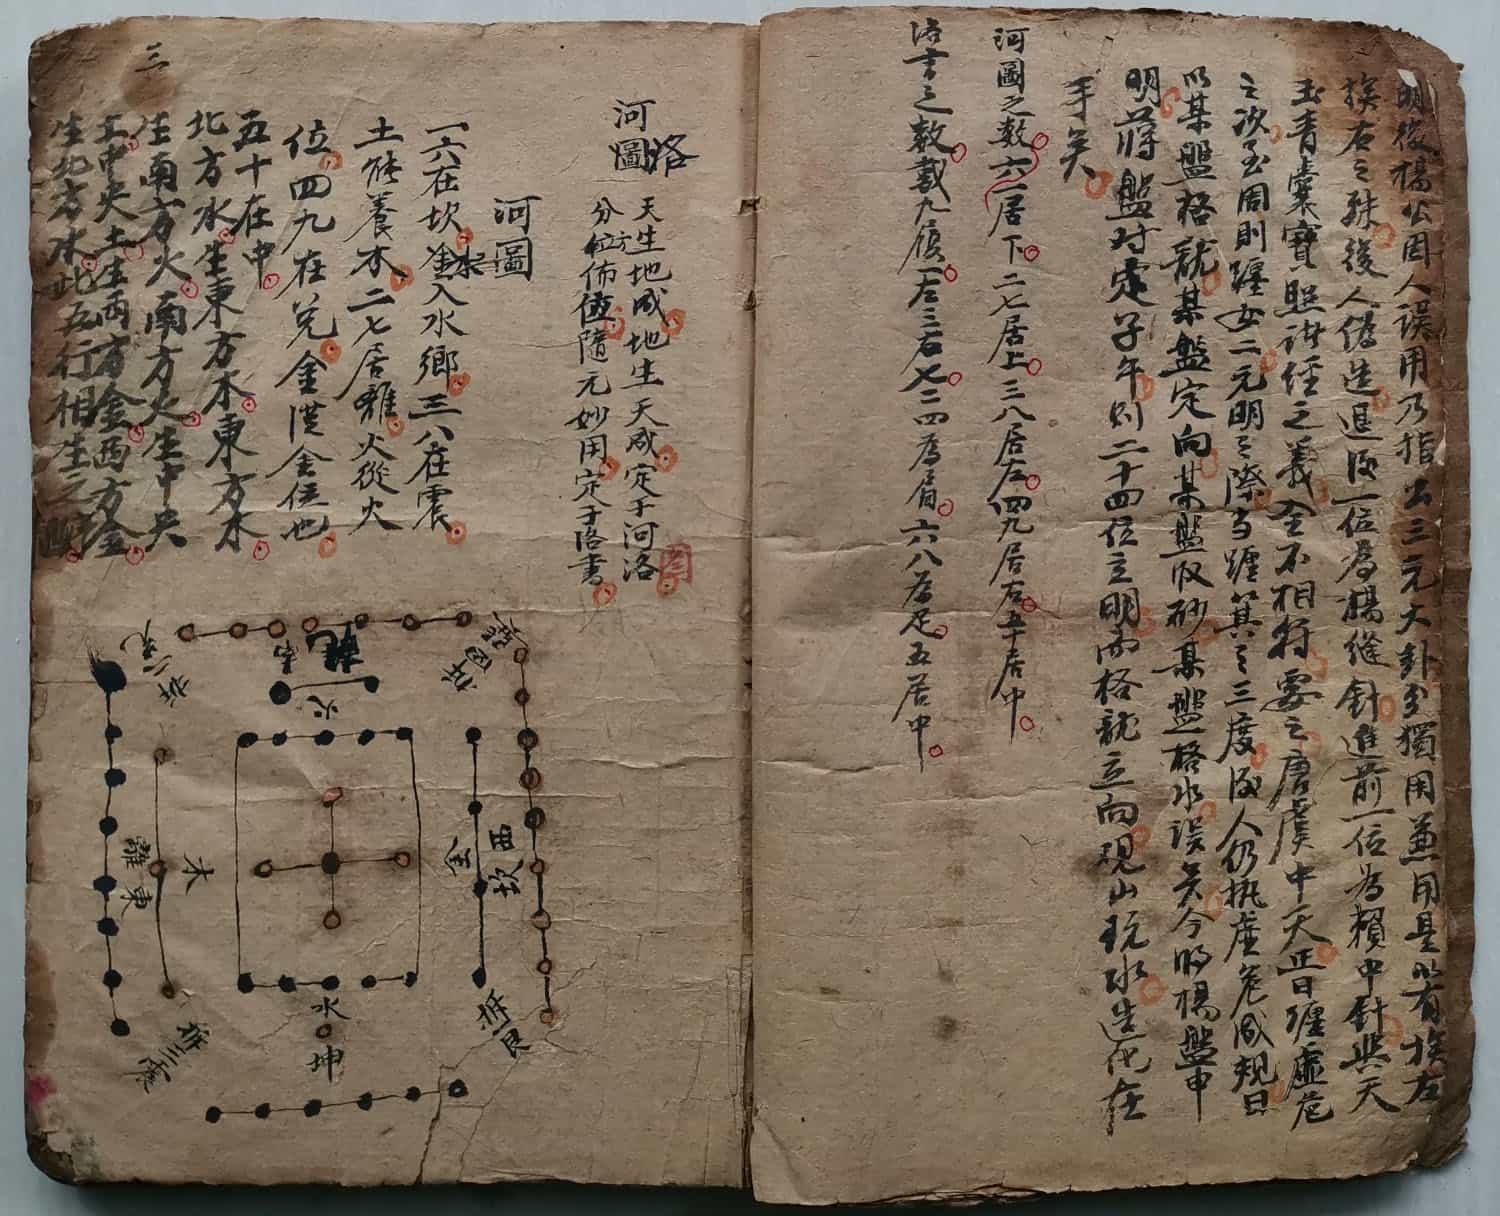 明後楊公因人誤用乃指出三元大卦分獨用兼用是以有挨左
挨右之殊後人偽造退後一位為楊縫針進前一位為賴中針與天
玉青囊寶照諸經之義全不相符要之唐虞中天正日纏虛危
之次至周則纏女二元明之際當纏箕之三度後人仍執虛危咸規日
以某盤格龍某盤定向某盤收砂某盤格水誤矣今將楊盤申
明蔣盤対處定子午則二十四位立明而格龍立向観山玩水造化在
手矣
河圖之数六一居下二七居上三八居左四九居右五十居中
洛書之数戴九履一左三右七二四為肩六八為足五居中
三
河洛圖
天生地成地生天成定于河洛
分位方佈值隨元妙用定于洛書
河圖
一六在坎金水入水鄉三八在震
土能養木二七居離火從火
位四九在兌金從金位也
五十在中
北方水生東方木東方木
生南方火南方火生中央
土中央土生西方金西方金
生北方水此五行相生之
乾
南
火
西
坎
金
木
東
離
水
坤